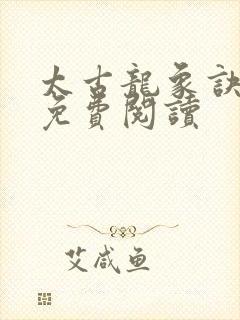 太古龍象訣
免費閱讀
艾咸鱼